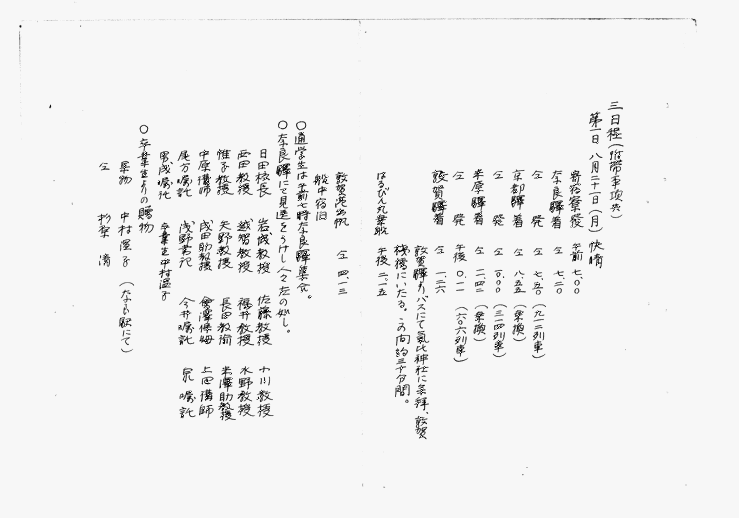 三日程(附帯事項共)
第一日 八月二十一日(月) 快晴
寄宿寮発 午前 七.〇〇
奈良驛着 仝 七.二〇
仝 発 仝 七.五〇 (九一二列車)
京都驛着 仝 八.五五 (乗換)
仝 発 仝 一〇.〇〇 (三一四列車)
米原驛着 仝 一一.四二 (乗換)
仝 発 午後 〇.一一 (六〇六列車)
敦賀驛着 仝 一.二六
敦賀驛よりバスにて気比神社に参拝、敦賀
桟橋にいたる。この間約三十分間。
はるびん丸乗船 午後 二.一五
敦賀港出帆 仝 四.一三
船中宿泊
〇通学生は午前七時奈良驛集合。
〇奈良驛にて見送をうけし人々左の如し。
日田校長 岩城教授 佐藤教授 小川教授
西田教授 越智教授 福井教授 水野教授
惟子教授 矢野教授 長田教諭 米澤助教授
中原講師 成田助教授 會澤保姆 上田講師
尾方嘱託 浅野書記 今井嘱託 泉嘱託
男成嘱託 卒業生中村運子
〇卒業生よりの贈物
果物 中村運子 (なら駅にて)
仝 杉梨 清